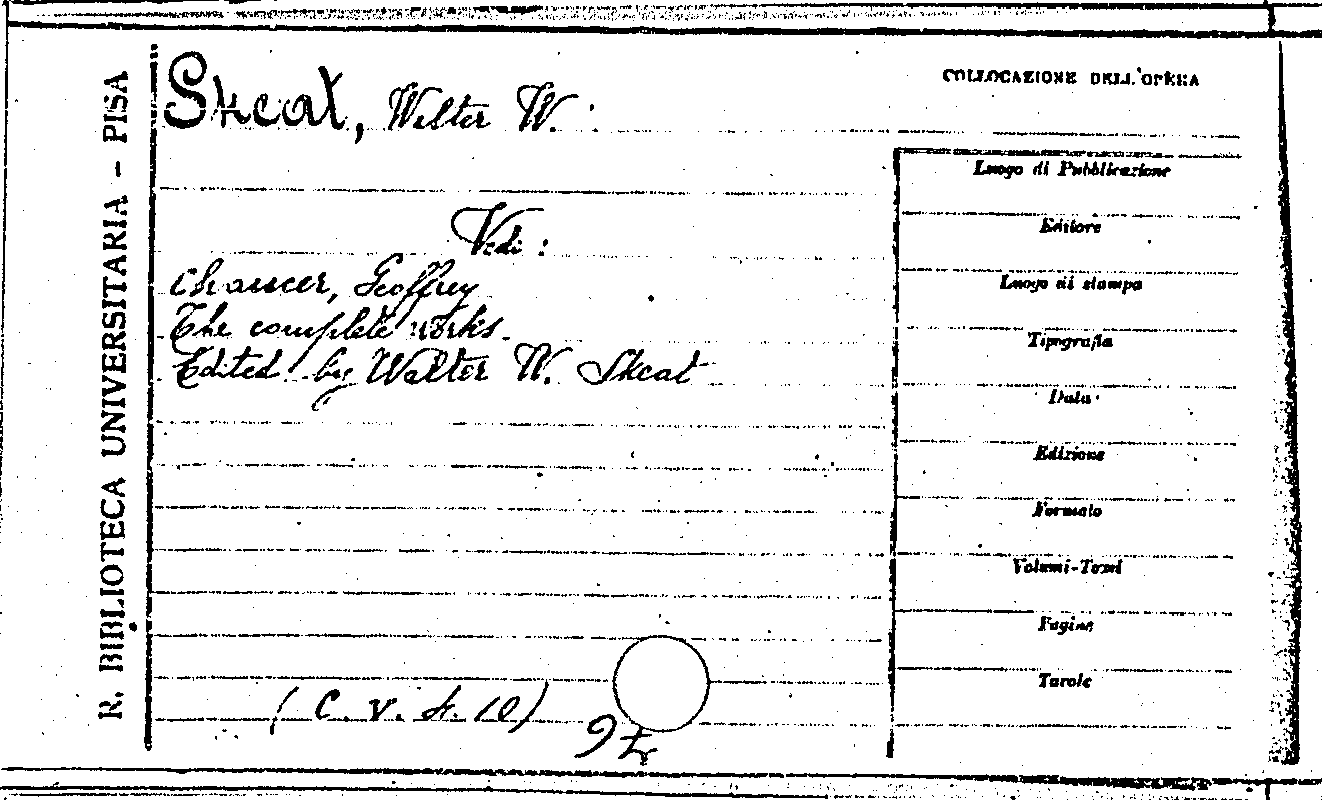 R. BIBLIOTECA UNIVERSITARIA - PISA
Skeat, Walter W.
Vedi:
Chaucer, Geoffrey
The complete works.
Edited by Walter W. Skeat
(C. V. 4. 10)
COLLOCAZIONE DELL'OPERA
Luogo di Pubblicazione
Editore
Luogo di stampa
Tipografia
Data
Edizione
Formato
Volumi-Tomi
Pagine
Tavole